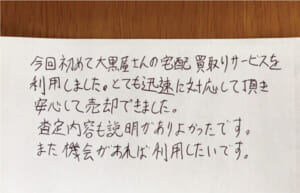 今回初めて大黒屋さんの宅配買取りサービスを
利用しました。とても迅速に対応して頂き
安心して売却できました。
査定内容も説明がありよかったです。
また機会があれば利用したいです。